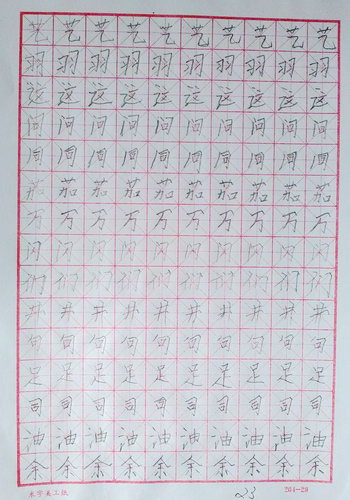 艺艺艺艺艺艺艺艺艺艺
羽羽羽羽羽羽羽羽羽羽
这这这这这这这这这这
问问问问问问问问问问
周周周周周周周周周周
茄茄茄茄茄茄茄茄茄茄
万万万万万万万万万万
闪闪闪闪闪闪闪闪闪闪
们们们们们们们们们们
井井井井井井井井井井
句句句句句句句句句句
足足足足足足足足足足
司司司司司司司司司司
油油油油油油油油油油
余余余余余余余余余余
米字美工纸 23 264-29